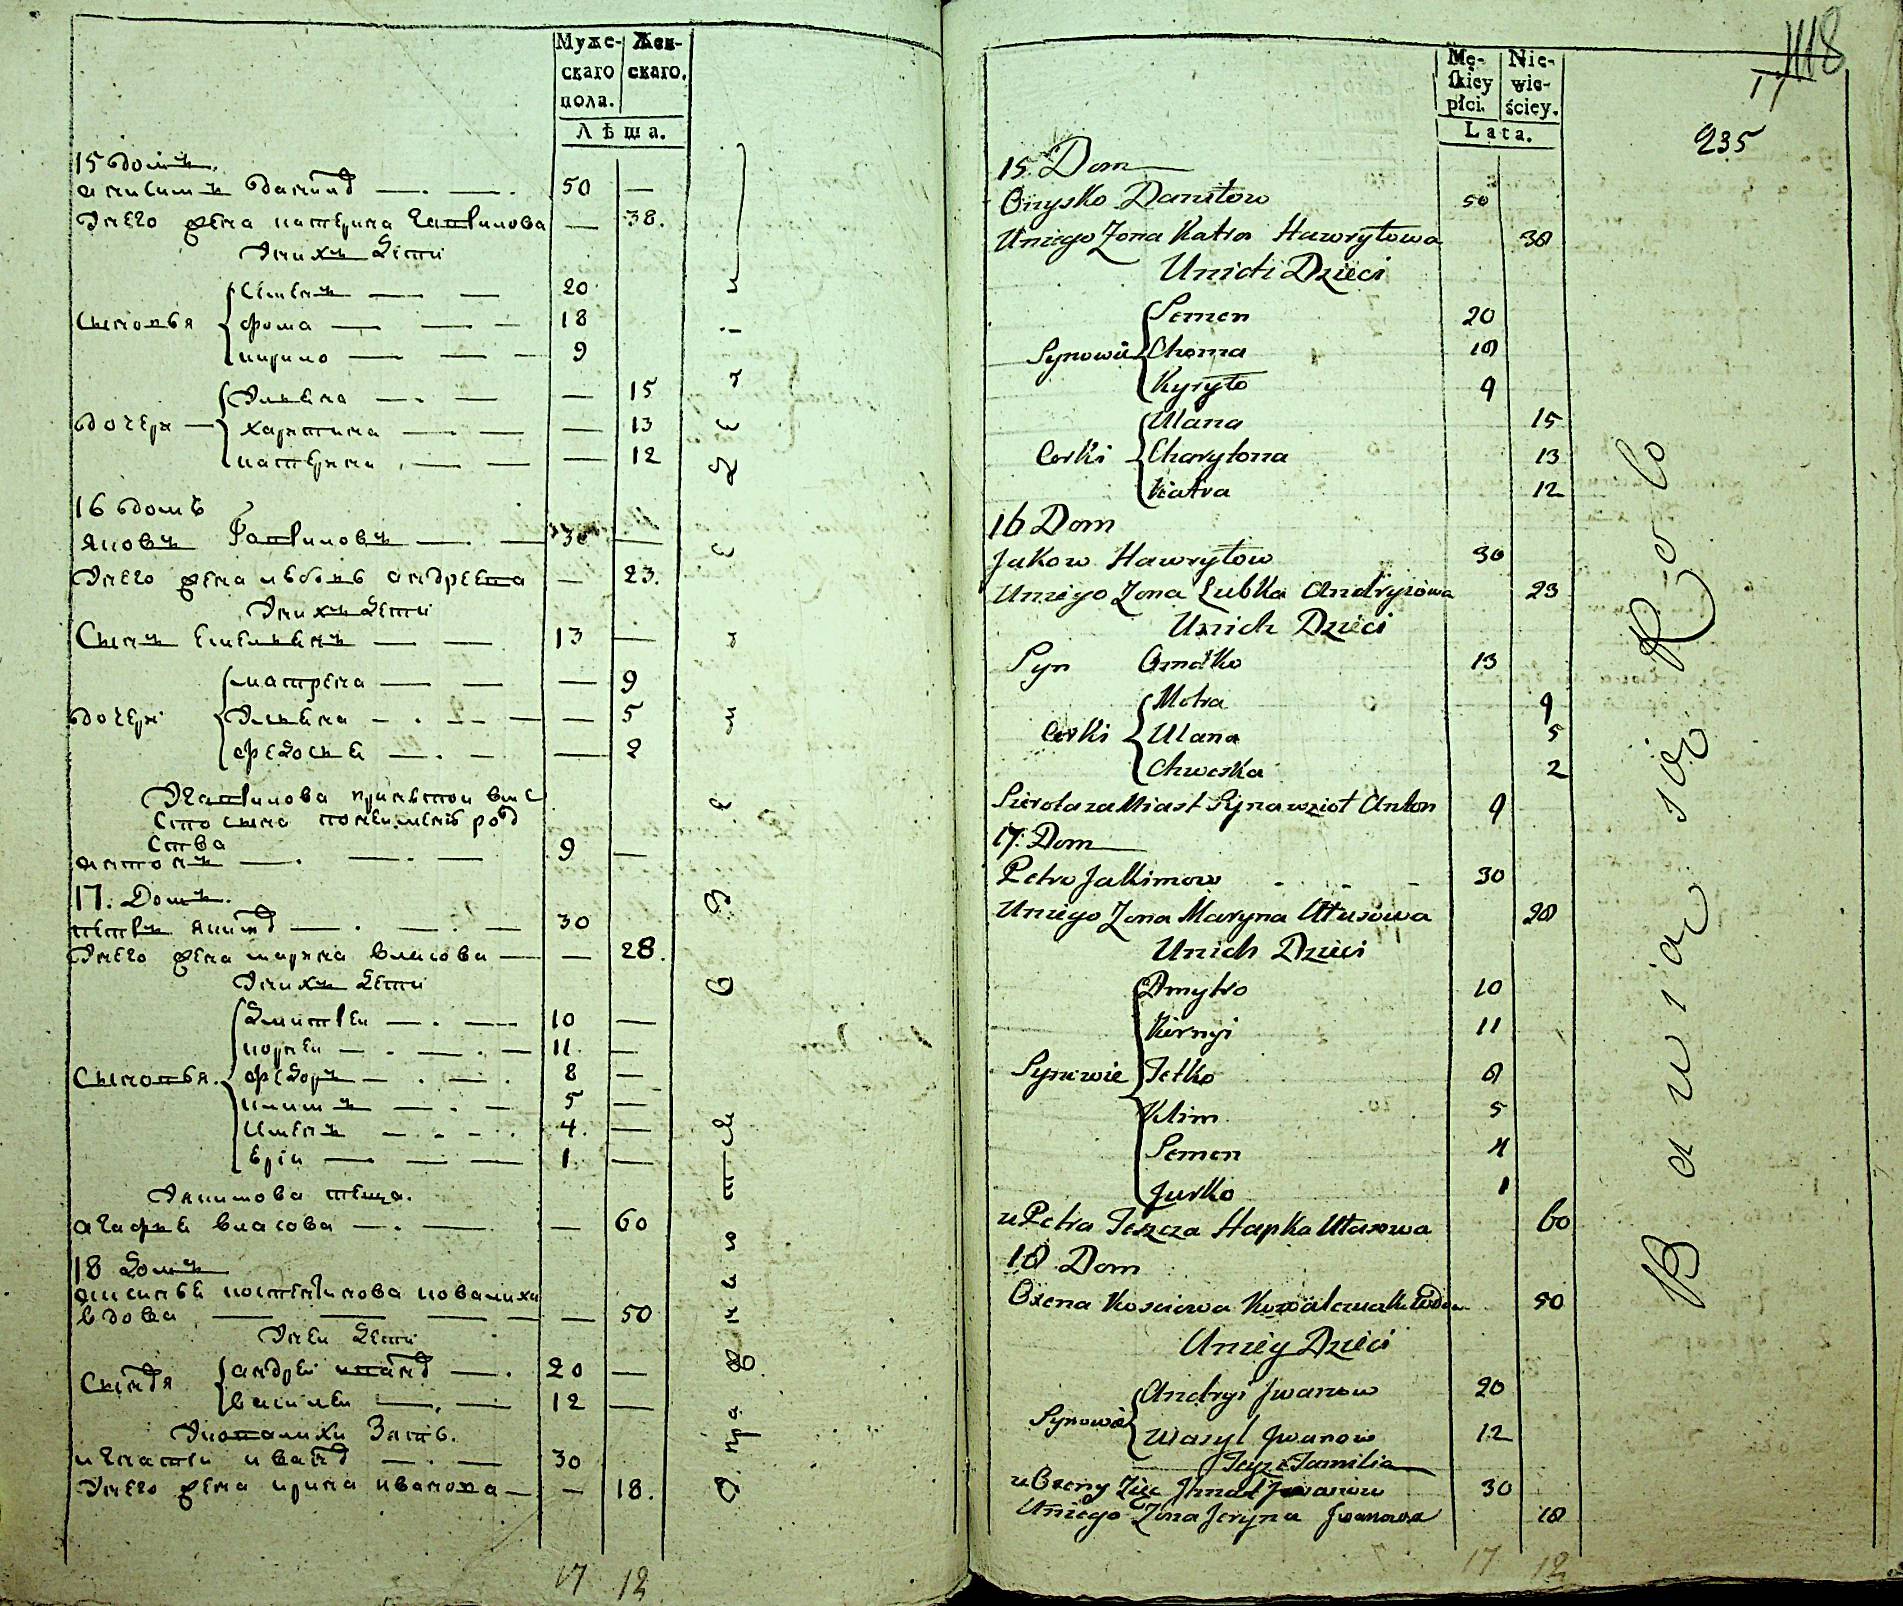 Муже-
скаго
пола.
Жен-
скаго.
Лѣта.
15 домъ.
анисимъ данилов 50 —
Унего жена катерина гавринова — 38.
Унихъ дети
Сыновья
семенъ 20
фома 18
кирило 9
дочери
Ульяна — 15
харитина — 13
катерина — 12
16 домъ
яковъ Гавриловъ 30 —
Унего жена любовь андреева — 23.
Унихъ дети
Сынъ емельянъ 13 —
дочери
матрена — 9
Ульяна — 5
федосья — 2
антонъ 9 —
17. Домъ.
петръ якимов 30
Унего жена марина власова — 28.
Унихъ дети
Сыновья.
дмитрей 10 —
корней 11. —
федоръ 8 —
климъ 5 —
семенъ 4. —
юрій 1 —
Уякимова теща.
агафья власова — 60
18 домъ
ксенья ковалиха
вдова — 50
Уней дети
андрей иванов 20 —
василей 12 —
Уковалихи Зять.
игнатей иванов 30
Унего жена ирина иванова — 18.
17 12
Упражняются в земледеліи
118
17
235
Mę-
ſkiey
płci.
Nie-
wie-
ściey.
Lata.
15 Dom
Onysko Daniłow 50
Uniego Zona Katra Hawryłowa 38
Unich Dzieci
Synowie
Semen 20
Choma 18
Kyryło 9
Corki
Ulana 15
Charytona 13
Katra 12
16 Dom
Jakow Hawryłow 30
Uniego Zona Lubka Andryiowa 23
Unich Dzieci
Syn Omelko 13
Corki
Motra 9
Ulana 5
Chweska 2
Sierota zamiast Syna wzioł Anton 9
17. Dom
Petro Jakimow 30
Uniego Zona Maryna Ułasowa 28
Unich Dzieci
Synowie
Dmytro 10
Kornyi 11
Fetko 8
Klim 5
Semen 4
Jurko 1
u Petra Teszcza Hapka Ułasowa 60
18 Dom
Oxena Kosciowa Kowalewa Wdowa 50
Uniey Dzieci
Synowie
Andryi Jwanow 20
Wasyl Jwanow 12
Teyze Familia
u Oxeny Zieć Jhnat Jwanow 30
Uniego Zona Jeryna Jwanowa 18
17 12
Bawiąc się Rolo